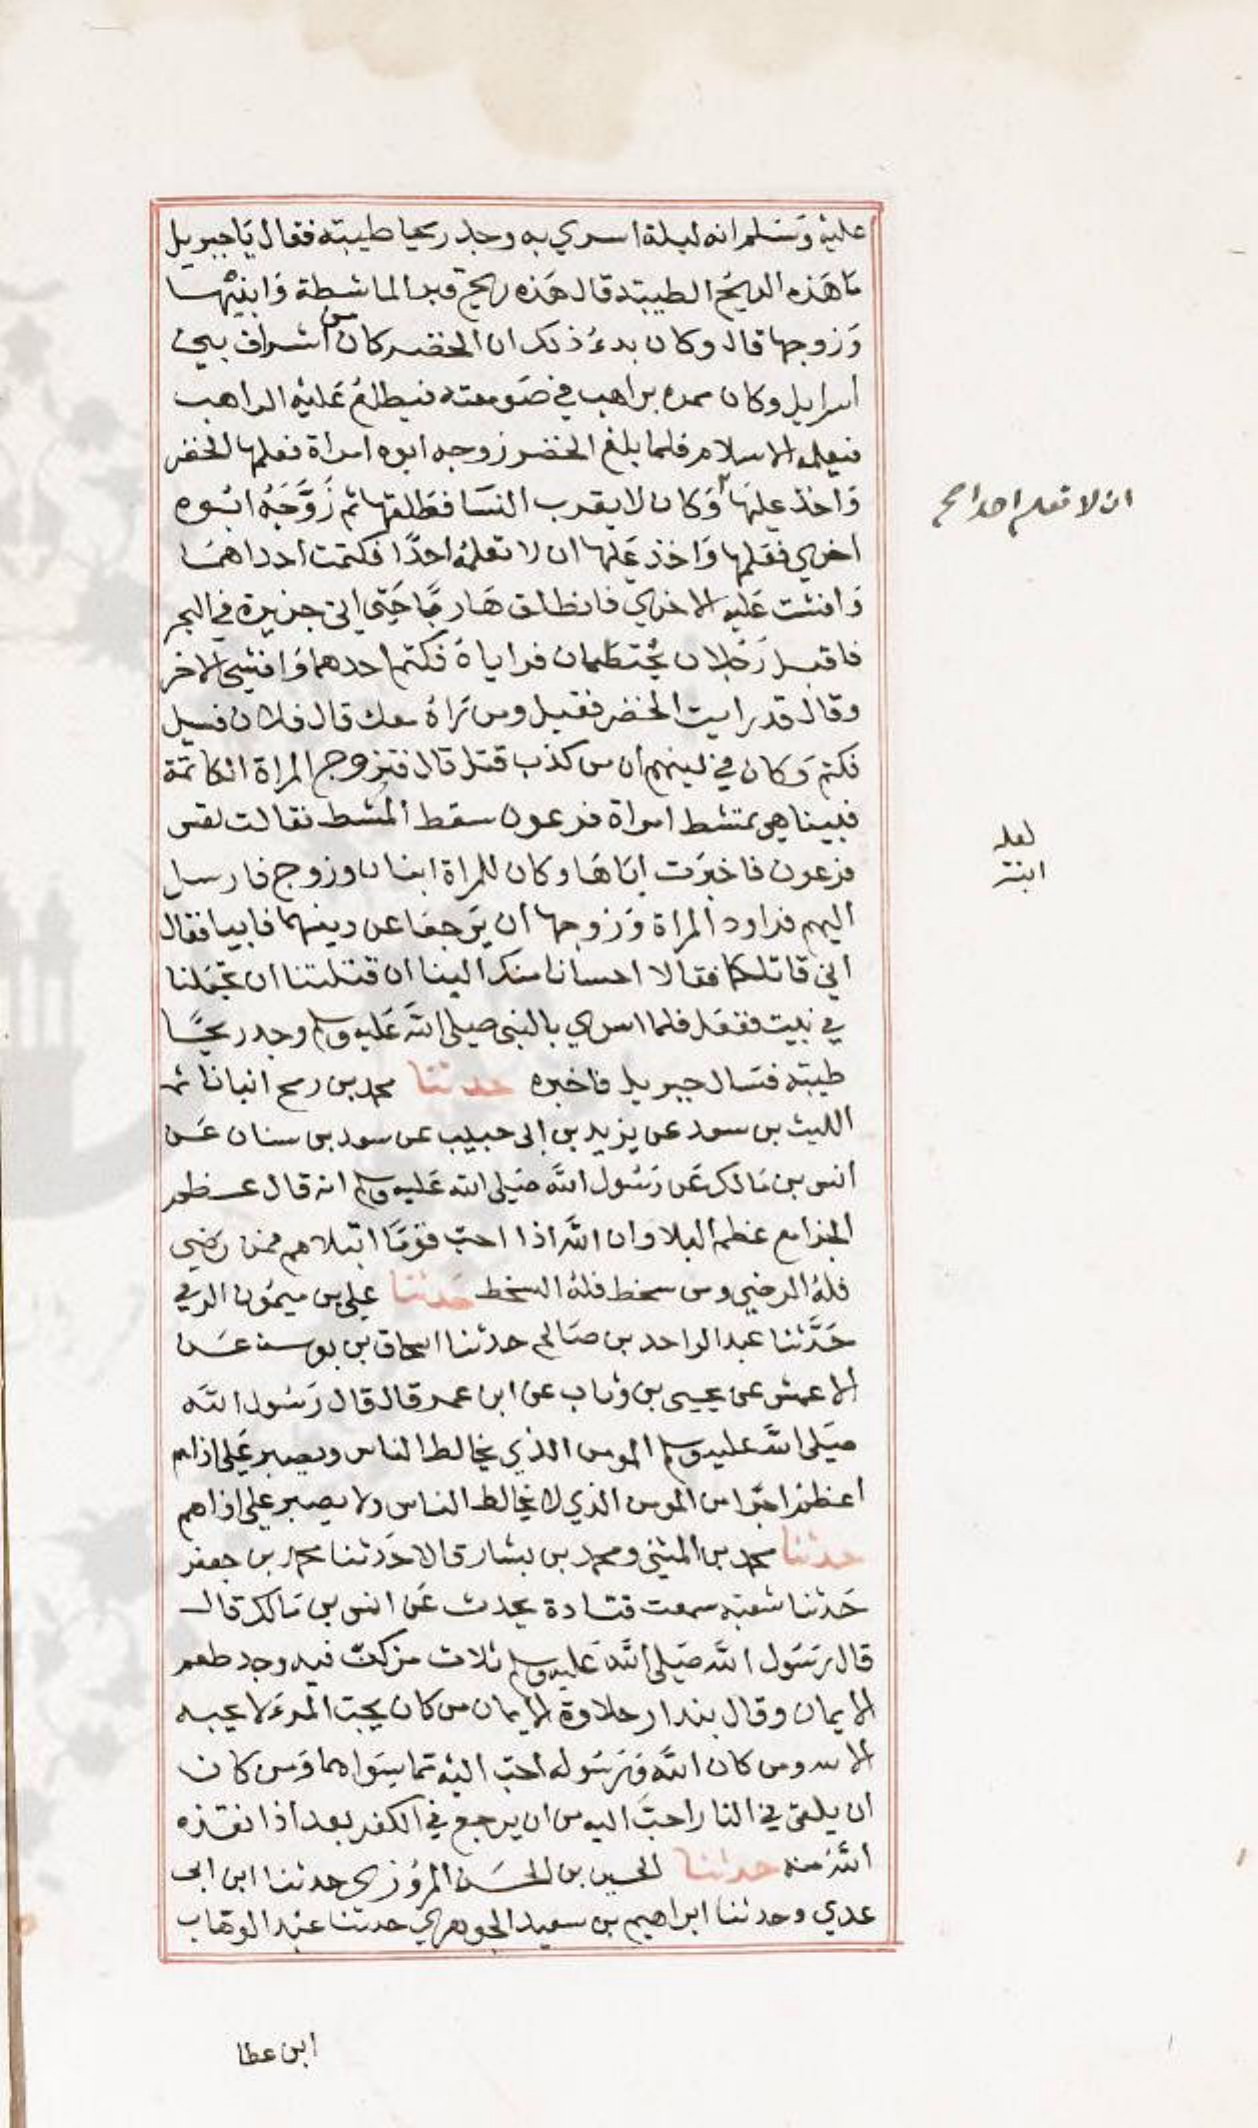 عليه وسلم انه ليلة اسري به وجد ريحا طيبة فقال يا جبريل
ما هذه الريح الطيبة قال هذه ريح قبر الماشطة وابنيها
وزوجها قال وكان بدء ذلك ان الخضر كان من اشراف بني
اسرايل وكان ممره براهب في صومعته فيطلع عليه الراهب
فيعلمه الاسلام فلما بلغ الخضر زوجه ابوه امراة فعلمها الخضر
واخذ عليها وكان لا يقرب النسا فطلقها ثم زوجه ابوه
ان لا تعلم احدا صح
اخري فعلمها واخذ عليها ان لا تعلمه احدا فكتمت احداهما
وافشت عليه الاخري فانطلق هاربا حتي اتي جزيرة في البحر
فاقبل رجلان يحتطبان فراياه فكتم احدهما وافشي الاخر
وقال قد رايت الخضر فقيل ومن راه معك قال فلان فسيل
فكتم وكان في دينهم ان من كذب قتل قال فتزوج المراة الكاتمة
فبينا هي تمتشط امراة فرعون سقط المشط فقالت تعس
لعله
ابنة
فرعون فاخبرت اباها وكان للمراة ابنان وزوج فارسل
اليهم فراود المراة وزوجها ان يرجعا عن دينهما فابيا فقال
اني قاتلكما فقالا احسانا منك الينا ان قتلتنا ان تجعلنا
في بيت ففعل فلما اسري بالنبي صلى الله عليه وسلم وجد ريحا
طيبة فسال جبريل فاخبره حدثنا محمد بن رمح انبانا
الليث بن سعد عن يزيد بن ابي حبيب عن سعد بن سنان عن
انس بن مالك عن رسول الله صلى الله عليه وسلم انه قال عظم
الجزا مع عظم البلا وان الله اذا احب قوما ابتلاهم فمن رضي
فله الرضي ومن سخط فله السخط حدثنا علي بن ميمون الرقي
حدثنا عبد الواحد بن صالح حدثنا اسحاق بن يوسف عن
الاعمش عن يحيى بن وثاب عن ابن عمر قال قال رسول الله
صلى الله عليه وسلم المومن الذي يخالط الناس ويصبر على اذاهم
اعظم اجرا من المومن الذي لا يخالط الناس ولا يصبر على اذاهم
حدثنا محمد بن المثني ومحمد بن بشار قالا حدثنا محمد بن جعفر
حدثنا شعبة سمعت قتادة يحدث عن انس بن مالك قال
قال رسول الله صلى الله عليه وسلم ثلاث من كن فيه وجد طعم
الايمان وقال بندار حلاوة الايمان من كان يحب المرء لا يحبه
الا لله ومن كان الله ورسوله احب اليه مما سواهما ومن كان
ان يلقي في النار احب اليه من ان يرجع في الكفر بعد اذ انقذه
الله منه حدثنا الحسين بن الحسن المروزي حدثنا ابن ابي
عدي وحدثنا ابراهيم بن سعيد الجوهري حدثنا عبد الوهاب
ابن عطا